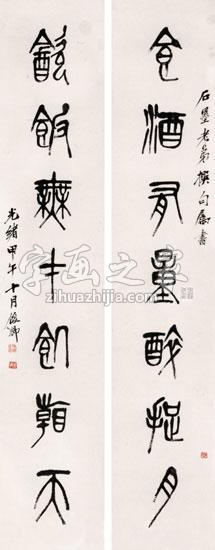 食酒有量醉捉月
石墨老弟撰句屬書
飲飯無牛飢朝天
光緒甲午十月俊卿
字画之家
zihuazhijia.com